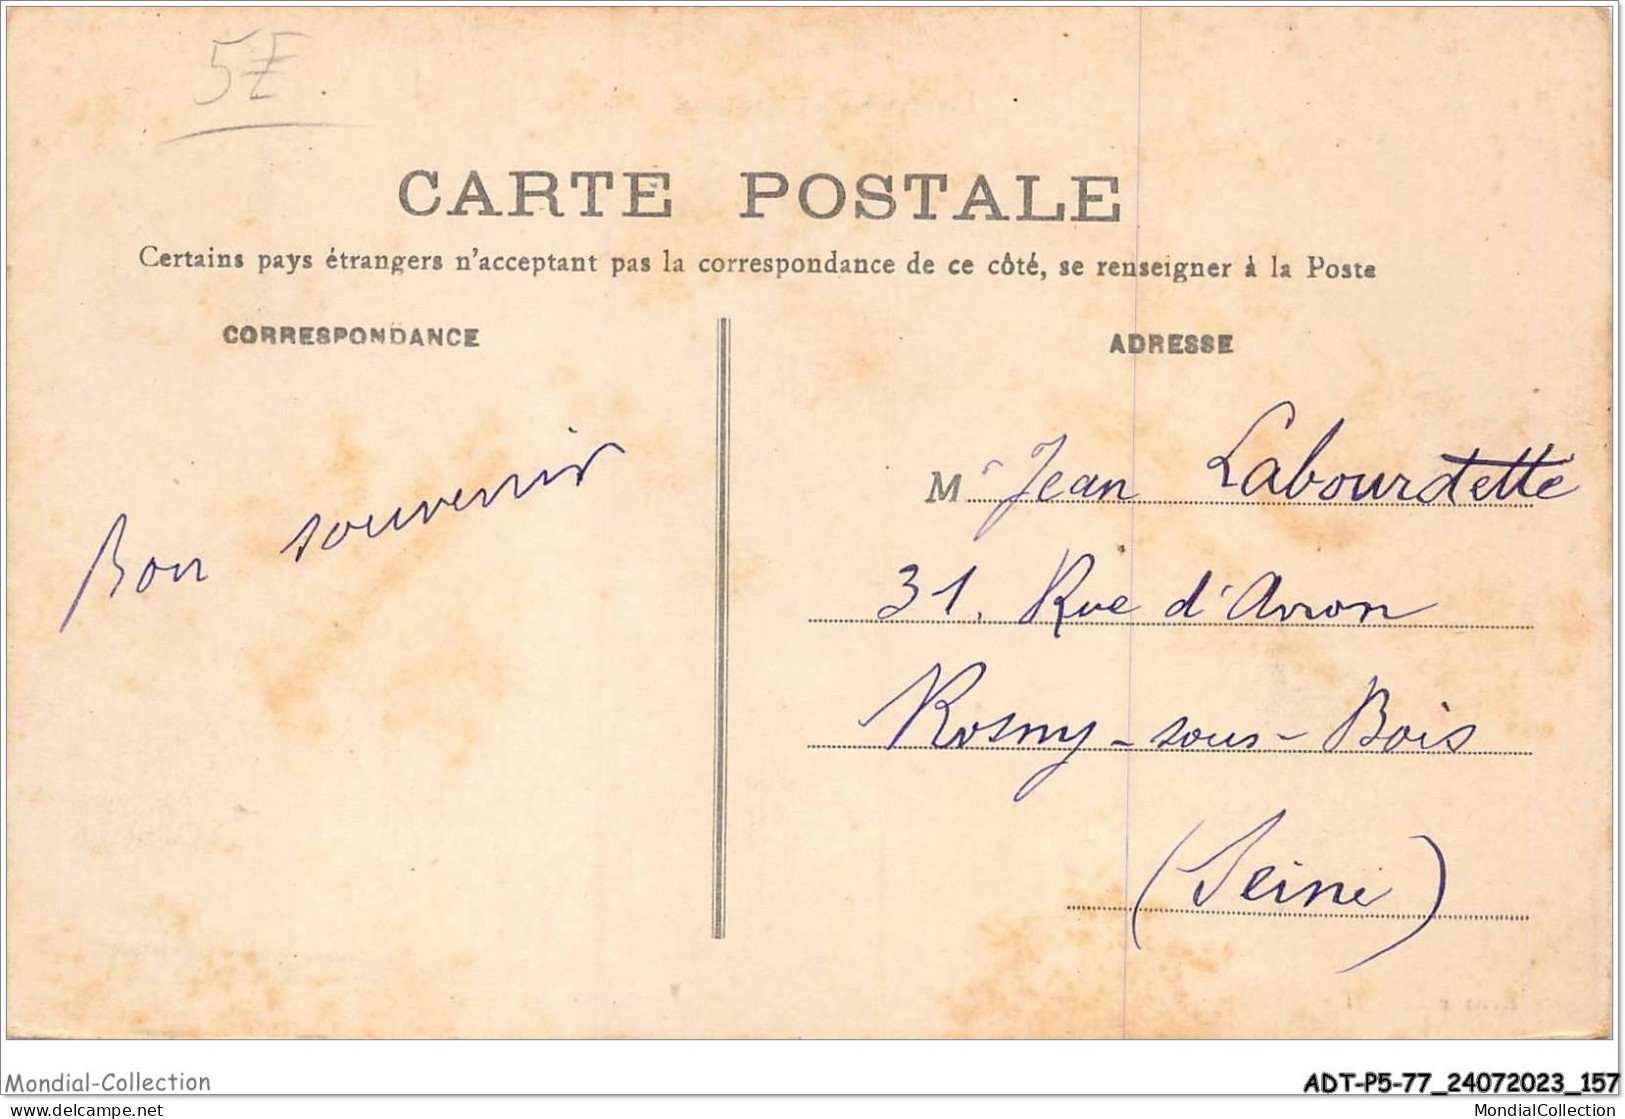 5E
CARTE POSTALE
Certains pays étrangers n'acceptant pas la correspondance de ce côté, se renseigner à la Poste
CORRESPONDANCE
Bon souvenir
ADRESSE
Mr Jean Labourdette
31. Rue d'Avron
Rosny-sous-Bois
(Seine)
Mondial-Collection
ADT-P5-77_24072023_157
www.delcampe.net
MondialCollection